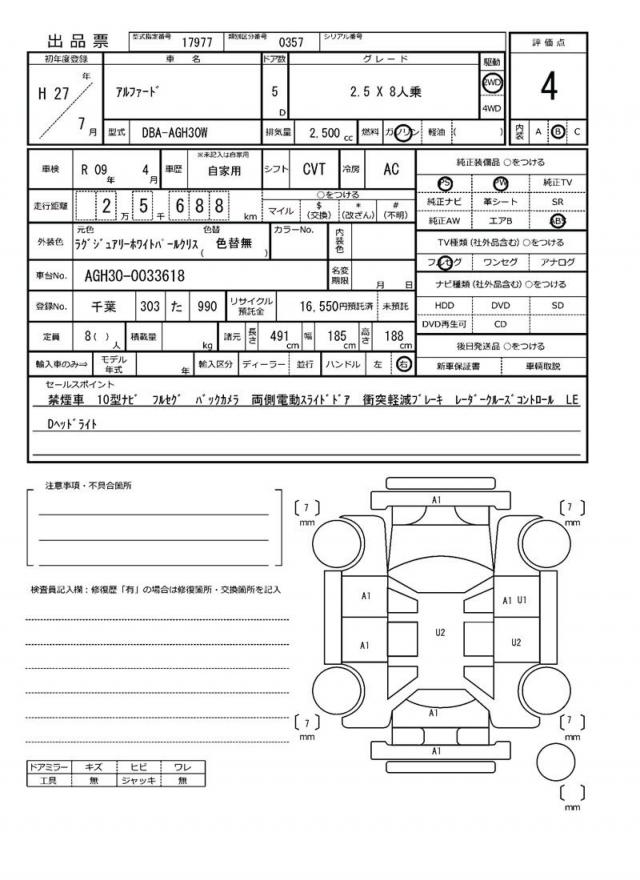 出品票 型式指定番号 17977 類別区分番号 0357 シリアル番号
評価点
4
内装 A B C
初年度登録 車名 ドア数 グレード 駆動
H 27 年 7 月
アルファード 5 D 2.5 X 8人乗 2WD 4WD
型式 DBA-AGH30W 排気量 2,500 cc 燃料 ガソリン 軽油 ( )
車検 R 09 年 4 月 車歴 ※未記入は自家用 自家用 シフト CVT 冷房 AC
走行距離 2 万 5 千 6 8 8 km ○をつける
マイル $ (交換) * (改ざん) # (不明)
外装色 元色 色替 カラーNo. 内装色
ラグジュアリーホワイトパールクリス ( 色替無 )
車台No. AGH30-0033618 名変期限 月 日
登録No. 千葉 303 た 990 リサイクル預託金 16,550円預託済 未預託
定員 8( ) 人 積載量 kg 諸元 長さ 491 cm 幅 185 cm 高さ 188 cm
輸入車のみ⇒ モデル年式 年 輸入区分 ディーラー 並行 ハンドル 左 右
純正装備品 ○をつける
PS PW 純正TV
純正ナビ 革シート SR
純正AW エアB ABS
TV種類(社外品含む) ○をつける
フルセグ ワンセグ アナログ
ナビ種類(社外品含む) ○をつける
HDD DVD SD
DVD再生可 CD
後日発送品 ○をつける
新車保証書 車輌取説
セールスポイント
禁煙車 10型ナビ フルセグ バックカメラ 両側電動スライドドア 衝突軽減ブレーキ レーダークルーズコントロール LE
Dヘッドライト
注意事項・不具合箇所
検査員記入欄:修復歴「有」の場合は修復箇所・交換箇所を記入
ドアミラー キズ ヒビ ワレ
工具 無 ジャッキ 無
A1
[ 7 ] mm
[ 7 ] mm
A1
A1 U1
A1
U2
U2
A1
[ 7 ] mm
[ 7 ] mm
A1
[ ] mm